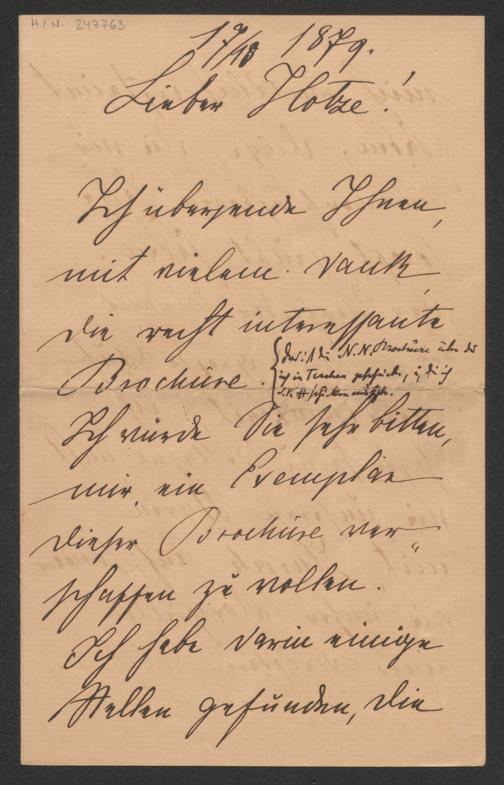 H.I.N. 247763
17/10 1879.
Lieber Hotze!
Ich übersende Ihnen,
mit vielem Dank
die recht interessante
Brochüre.
die N.N. Brochüre über die
ich in
Ich würde Sie sehr bitten,
mir ein Exemplar
dieser Brochüre ver"
schaffen zu wollen.
Ich habe darin einige
Stellen gefunden, die